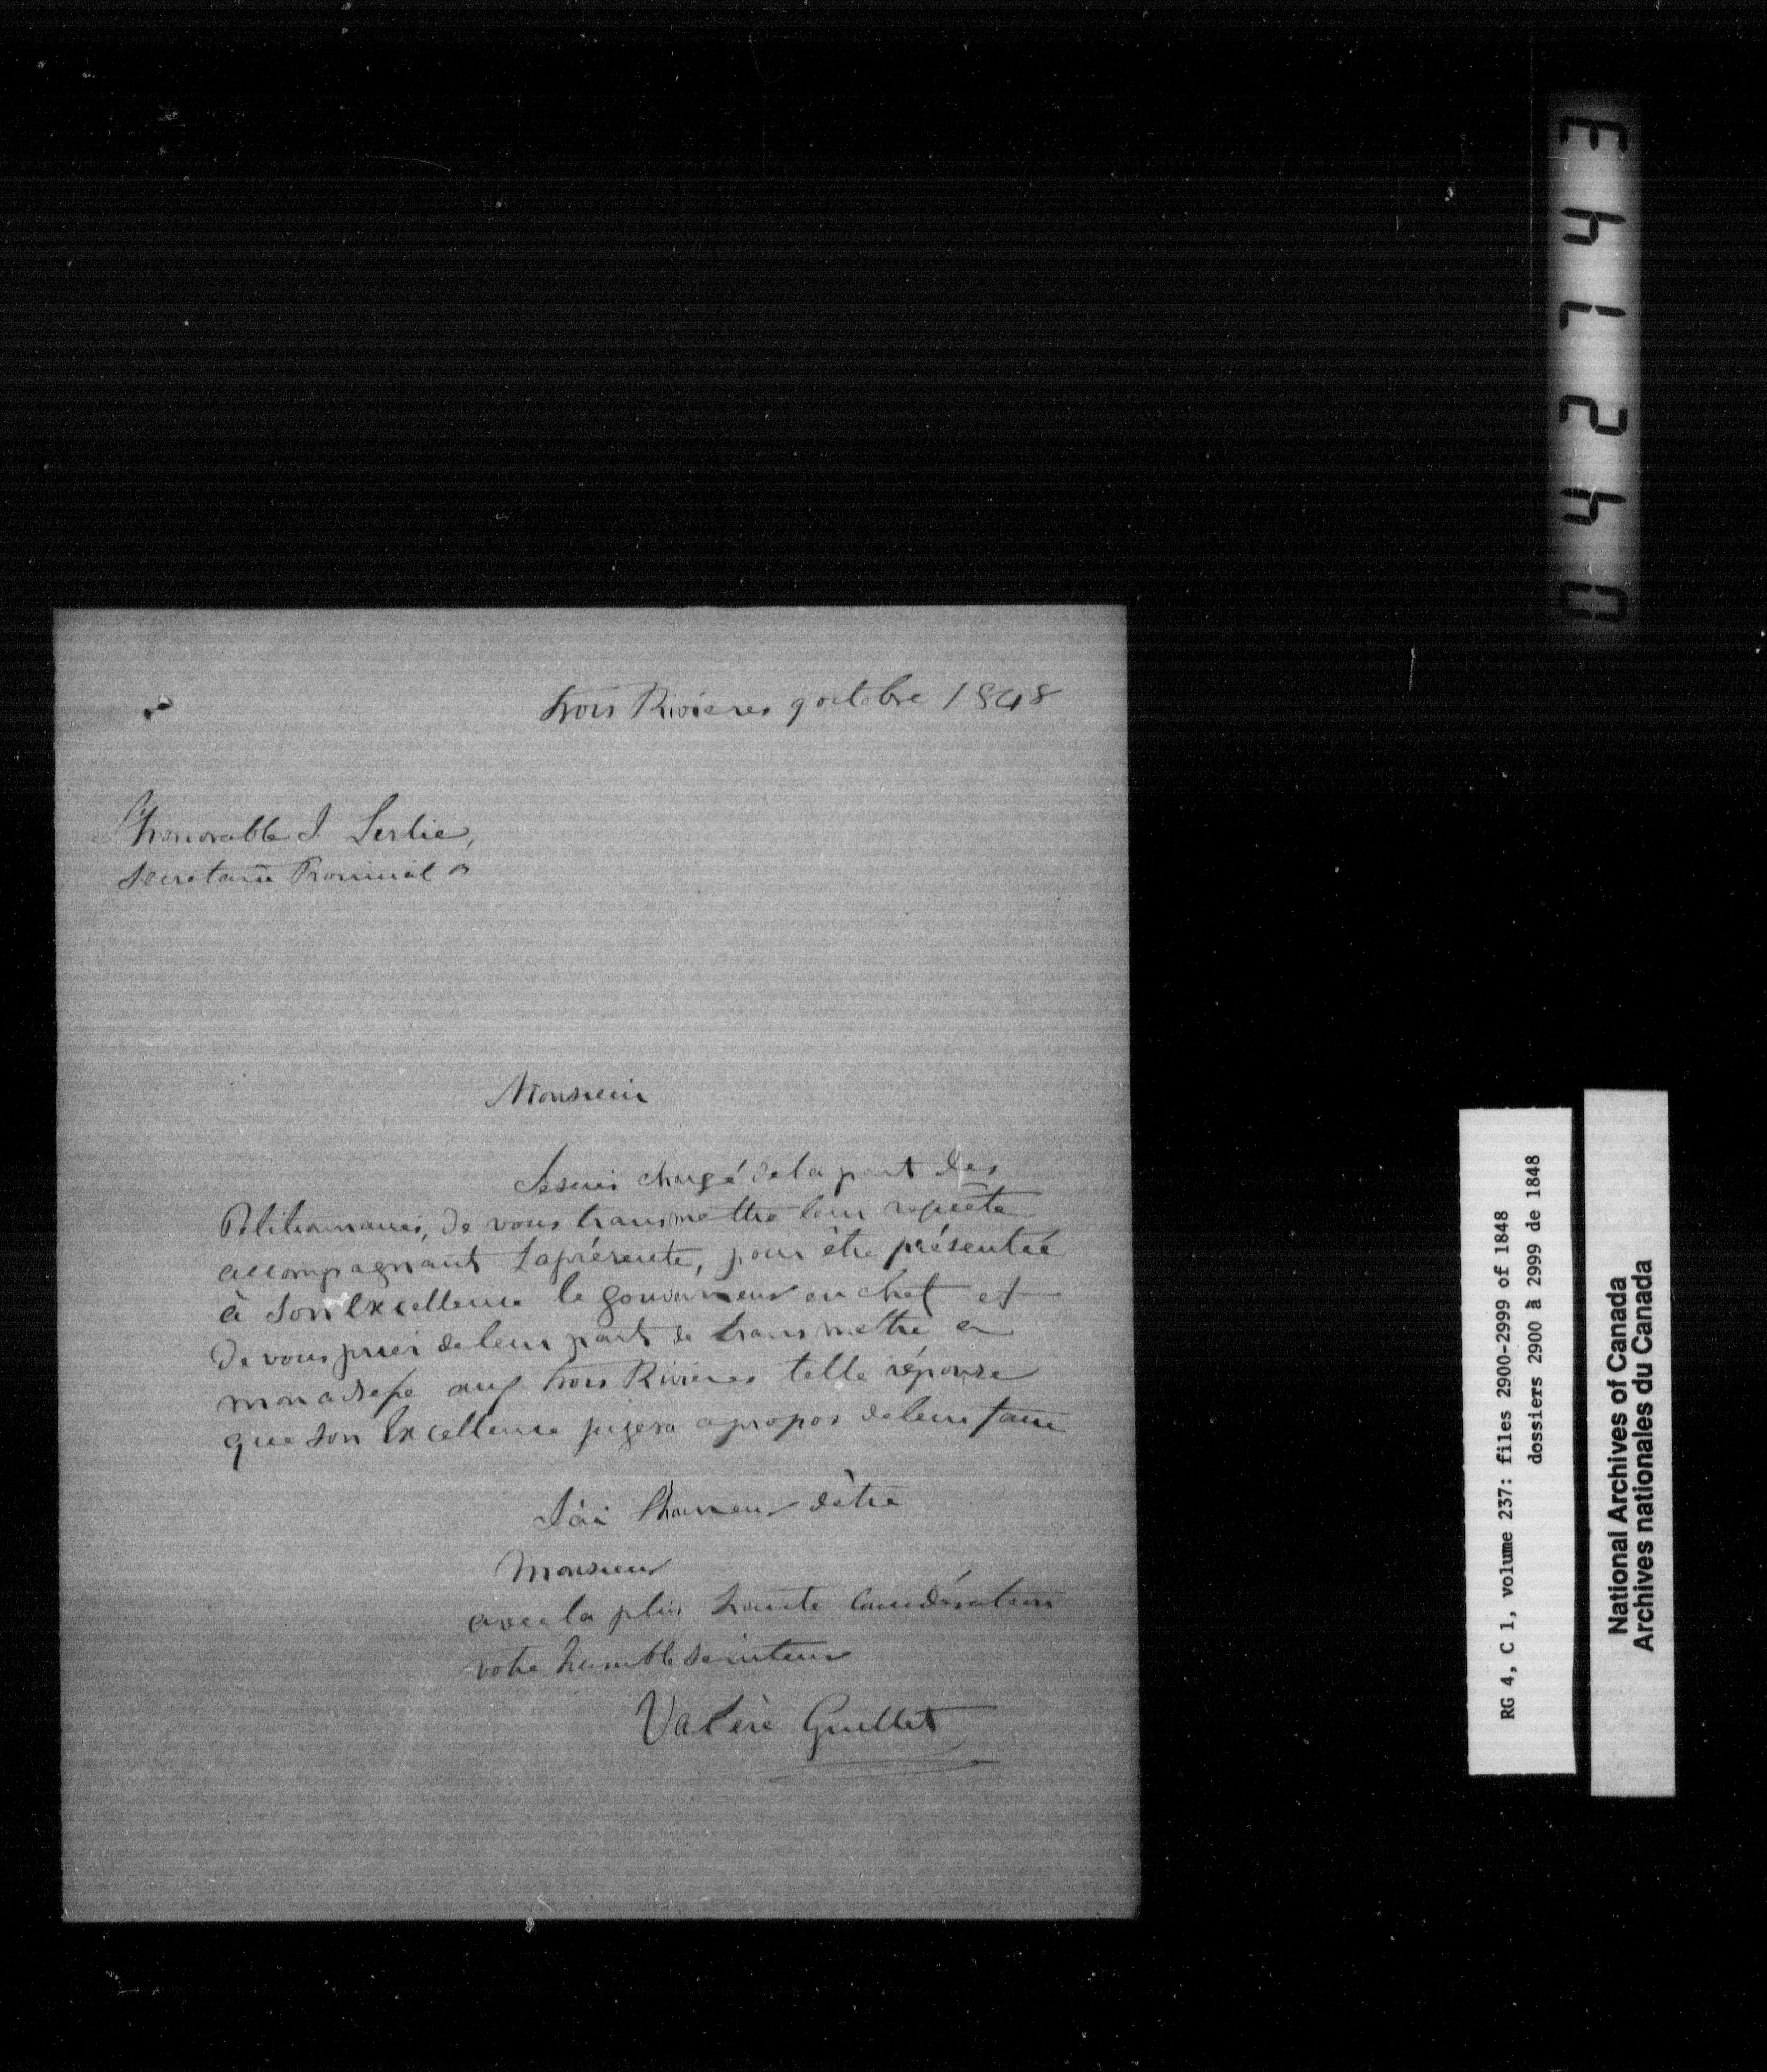 trois Rivieres 9 octobre 1848
L'honorable J. Leslie,
Secretaire Provincial
Monsieur
Je suis chargé de la part des
Petitionnaires, de vous transmettre leur requête
accompagnant la présente, pour être présentée
à Son Excellence le gouverneur en chef et
de vous prier de leur part de transmettre a
mon adresse aux trois Rivieres telle réponse
que son Excellence jugera apropos de leur faire
J'ai l'honneur d'être
Monsieur
avec la plus haute Considération
votre humble serviteur
Valère Guillet
042743
RG 4, C 1, volume 237: files 2900-2999 of 1848
dossiers 2900 à 2999 de 1848
National Archives of Canada
Archives nationales du Canada